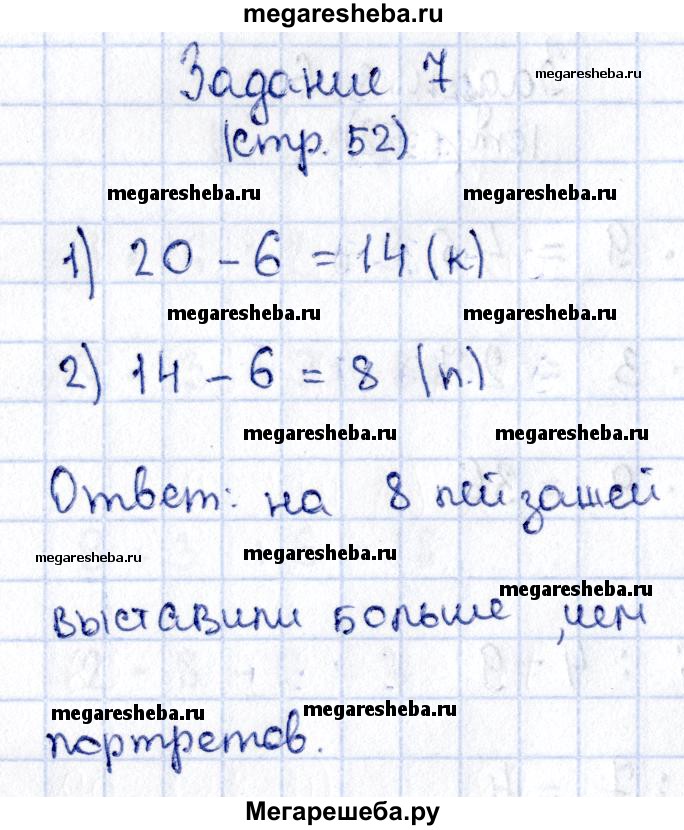 megaresheba.ru
Задание 7
megaresheba.ru
(стр. 52)
megaresheba.ru megaresheba.ru
1) 20 - 6 = 14 (к)
megaresheba.ru megaresheba.ru
2) 14 - 6 = 8 (п.)
megaresheba.ru megaresheba.ru
Ответ: на 8 пейзажей
megaresheba.ru megaresheba.ru
megaresheba.ru
выставили больше, чем
megaresheba.ru megaresheba.ru
портретов.
Мегарешеба.ру